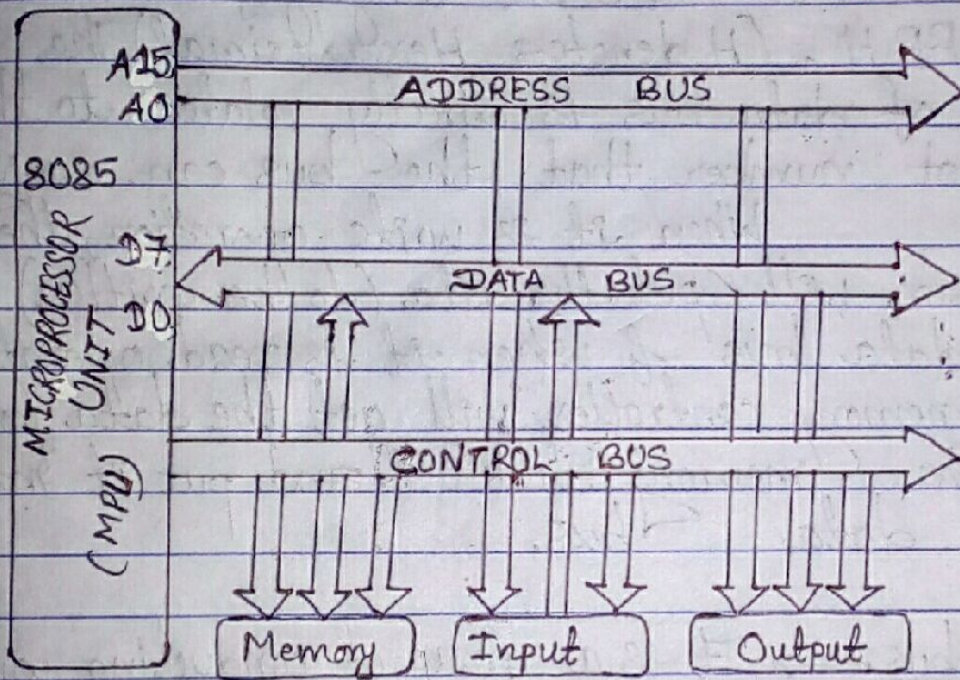 A15
ADDRESS BUS
A0
8085
MICROPROCESSOR
UNIT
(MPU)
D7
DATA BUS
D0
CONTROL BUS
Memory
Input
Output